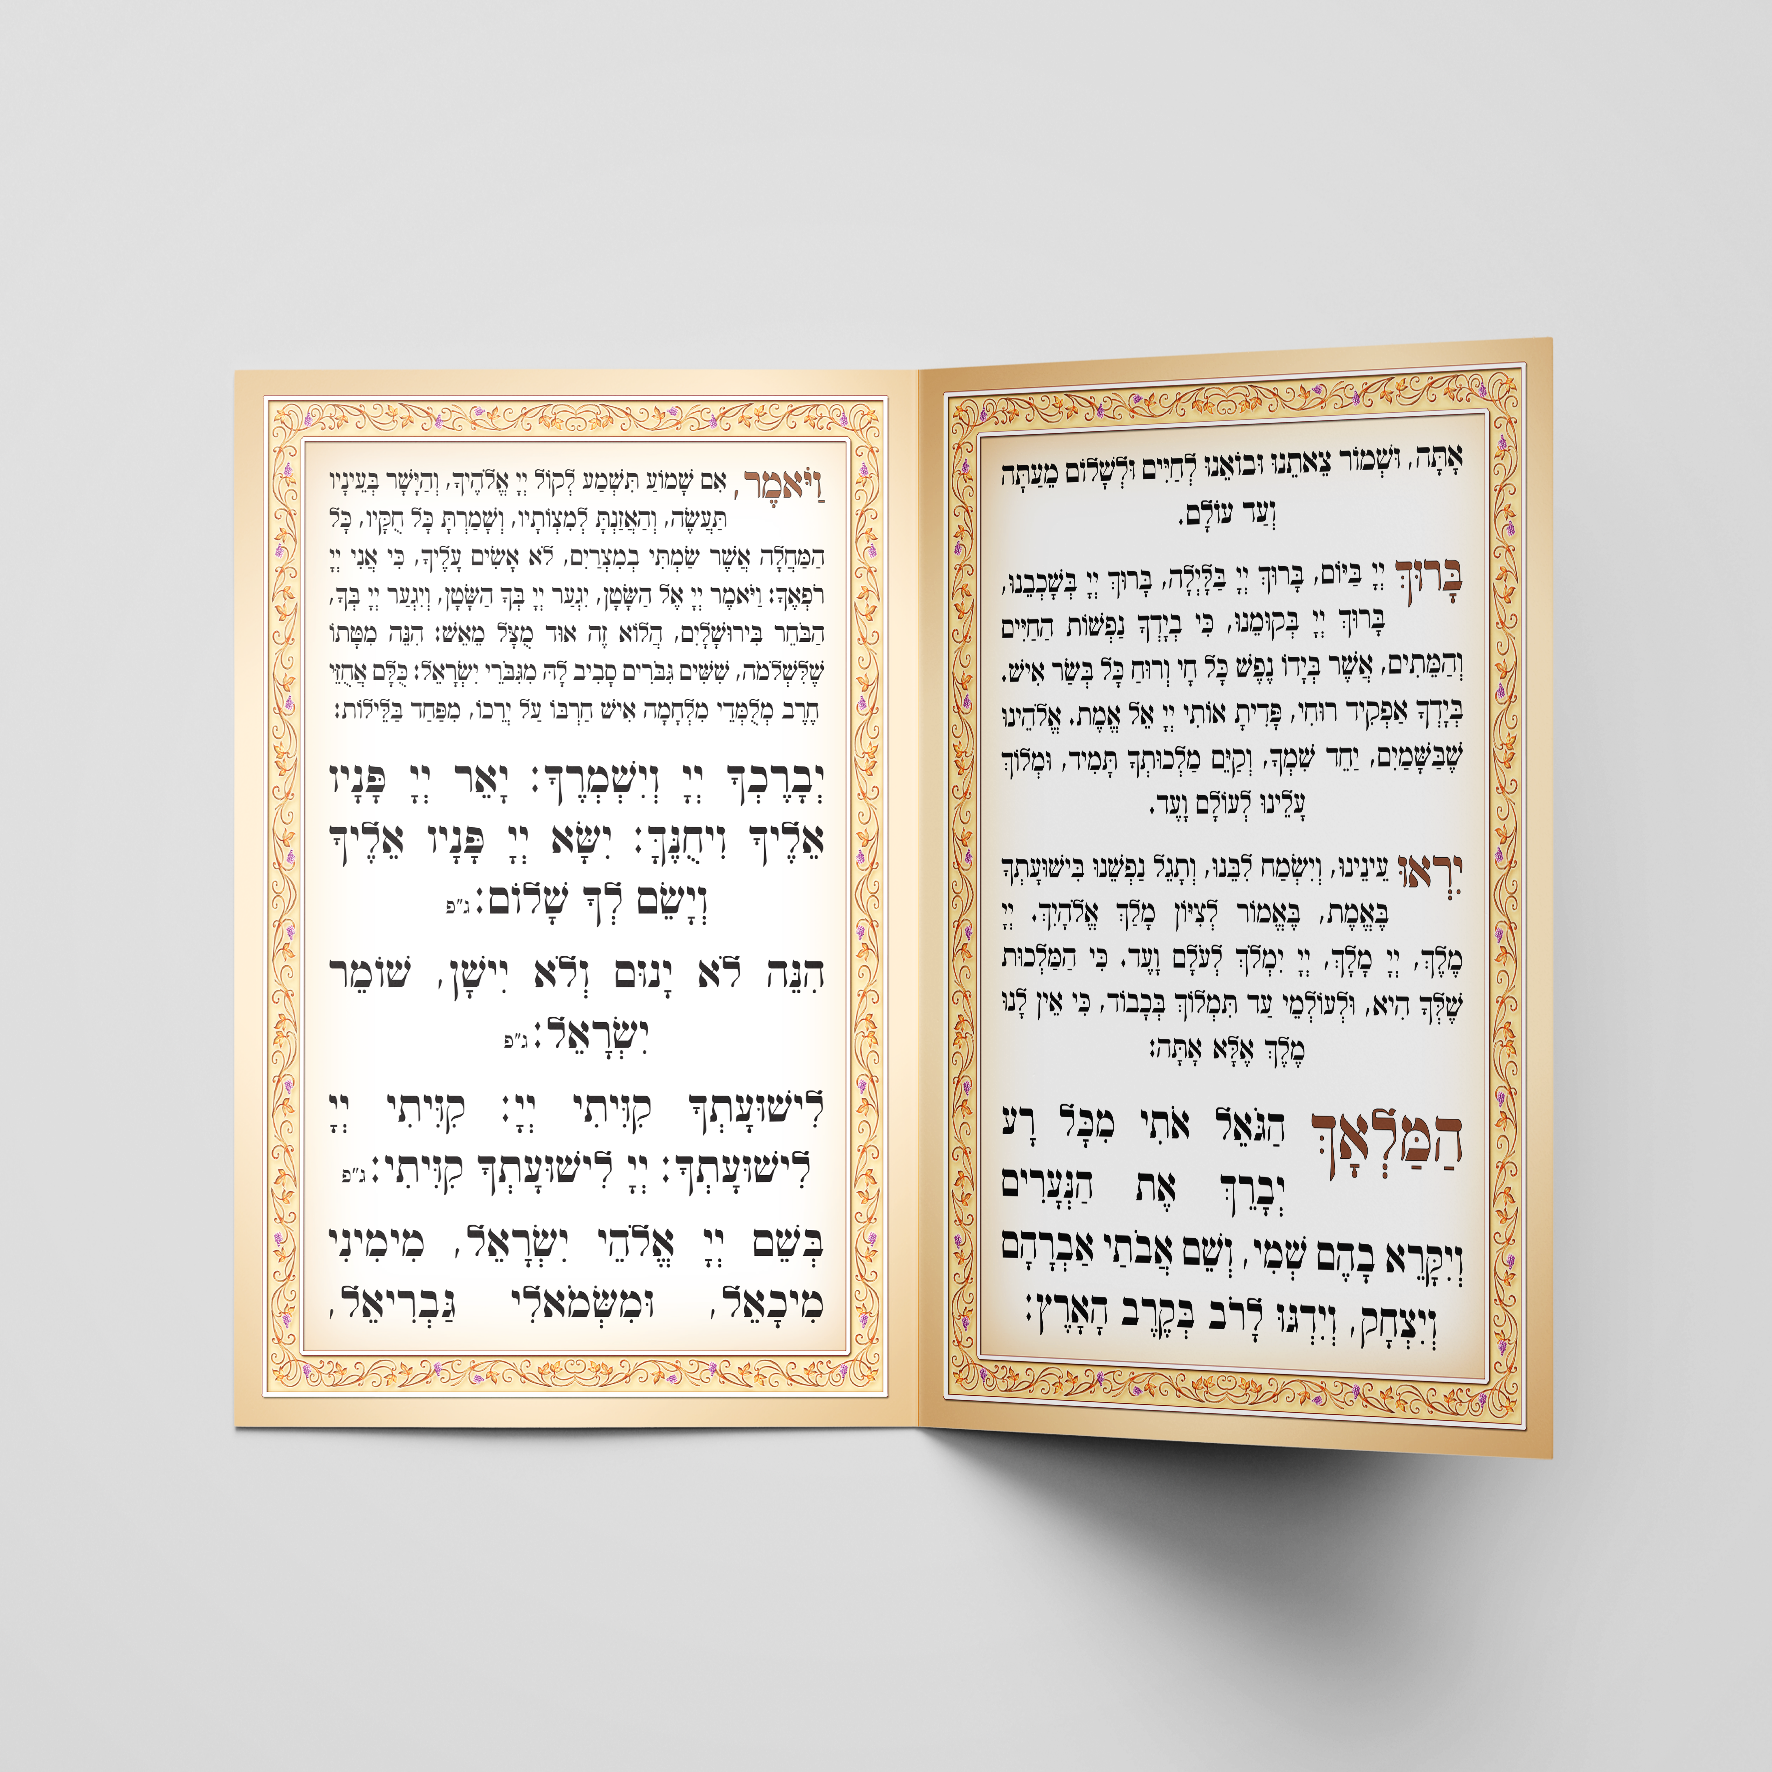 אַתָּה, וּשְׁמוֹר צֵאתֵנוּ וּבוֹאֵנוּ לְחַיִּים וּלְשָׁלוֹם מֵעַתָּה
וְעַד עוֹלָם.
בָּרוּךְ יְיָ בַּיּוֹם, בָּרוּךְ יְיָ בַּלָּיְלָה, בָּרוּךְ יְיָ בְּשָׁכְבֵנוּ,
בָּרוּךְ יְיָ בְּקוּמֵנוּ, כִּי בְיָדְךָ נַפְשׁוֹת הַחַיִּים
וְהַמֵּתִים, אֲשֶׁר בְּיָדוֹ נֶפֶשׁ כָּל חָי וְרוּחַ כָּל בְּשַׂר אִישׁ.
בְּיָדְךָ אַפְקִיד רוּחִי, פָּדִיתָ אוֹתִי יְיָ אֵל אֱמֶת. אֱלֹהֵינוּ
שֶׁבַּשָּׁמַיִם, יַחֵד שִׁמְךָ, וְקַיֵּם מַלְכוּתְךָ תָּמִיד, וּמְלוֹךְ
עָלֵינוּ לְעוֹלָם וָעֶד.
יִרְאוּ עֵינֵינוּ, וְיִשְׂמַח לִבֵּנוּ, וְתָגֵל נַפְשֵׁנוּ בִּישׁוּעָתְךָ
בֶּאֱמֶת, בֶּאֱמוֹר לְצִיּוֹן מָלַךְ אֱלֹהָיִךְ. יְיָ
מֶלֶךְ, יְיָ מָלָךְ, יְיָ יִמְלֹךְ לְעֹלָם וָעֶד. כִּי הַמַּלְכוּת
שֶׁלְּךָ הִיא, וּלְעוֹלְמֵי עַד תִּמְלוֹךְ בְּכָבוֹד, כִּי אֵין לָנוּ
מֶלֶךְ אֶלָּא אָתָּה:
הַמַּלְאָךְ הַגֹּאֵל אֹתִי מִכָּל רָע
יְבָרֵךְ אֶת הַנְּעָרִים
וְיִקָּרֵא בָהֶם שְׁמִי, וְשֵׁם אֲבֹתַי אַבְרָהָם
וְיִצְחָק, וְיִדְגּוּ לָרֹב בְּקֶרֶב הָאָרֶץ:
וַיֹּאמֶר, אִם שָׁמוֹעַ תִּשְׁמַע לְקוֹל יְיָ אֱלֹהֶיךָ, וְהַיָּשָׁר בְּעֵינָיו
תַּעֲשֶׂה, וְהַאֲזַנְתָּ לְמִצְוֹתָיו, וְשָׁמַרְתָּ כָּל חֻקָּיו, כָּל
הַמַּחֲלָה אֲשֶׁר שַׂמְתִּי בְמִצְרַיִם, לֹא אָשִׂים עָלֶיךָ, כִּי אֲנִי יְיָ
רֹפְאֶךָ: וַיֹּאמֶר יְיָ אֶל הַשָּׂטָן, יִגְעַר יְיָ בְּךָ הַשָּׂטָן, וְיִגְעַר יְיָ בְּךָ,
הַבֹּחֵר בִּירוּשָׁלָיִם, הֲלוֹא זֶה אוּד מֻצָּל מֵאֵשׁ: הִנֵּה מִטָּתוֹ
שֶׁלִּשְׁלֹמֹה, שִׁשִּׁים גִּבֹּרִים סָבִיב לָהּ מִגִּבֹּרֵי יִשְׂרָאֵל: כֻּלָּם אֲחֻזֵי
חֶרֶב מְלֻמְּדֵי מִלְחָמָה אִישׁ חַרְבּוֹ עַל יְרֵכוֹ, מִפַּחַד בַּלֵּילוֹת:
יְבָרֶכְךָ יְיָ וְיִשְׁמְרֶךָ: יָאֵר יְיָ פָּנָיו
אֵלֶיךָ וִיחֻנֶּךָּ: יִשָּׂא יְיָ פָּנָיו אֵלֶיךָ
וְיָשֵׂם לְךָ שָׁלוֹם: ג"פ
הִנֵּה לֹא יָנוּם וְלֹא יִישָׁן, שׁוֹמֵר
יִשְׂרָאֵל: ג"פ
לִישׁוּעָתְךָ קִוִּיתִי יְיָ: קִוִּיתִי יְיָ
לִישׁוּעָתְךָ: יְיָ לִישׁוּעָתְךָ קִוִּיתִי: ג"פ
בְּשֵׁם יְיָ אֱלֹהֵי יִשְׂרָאֵל, מִימִינִי
מִיכָאֵל, וּמִשְּׂמֹאלִי גַּבְרִיאֵל,